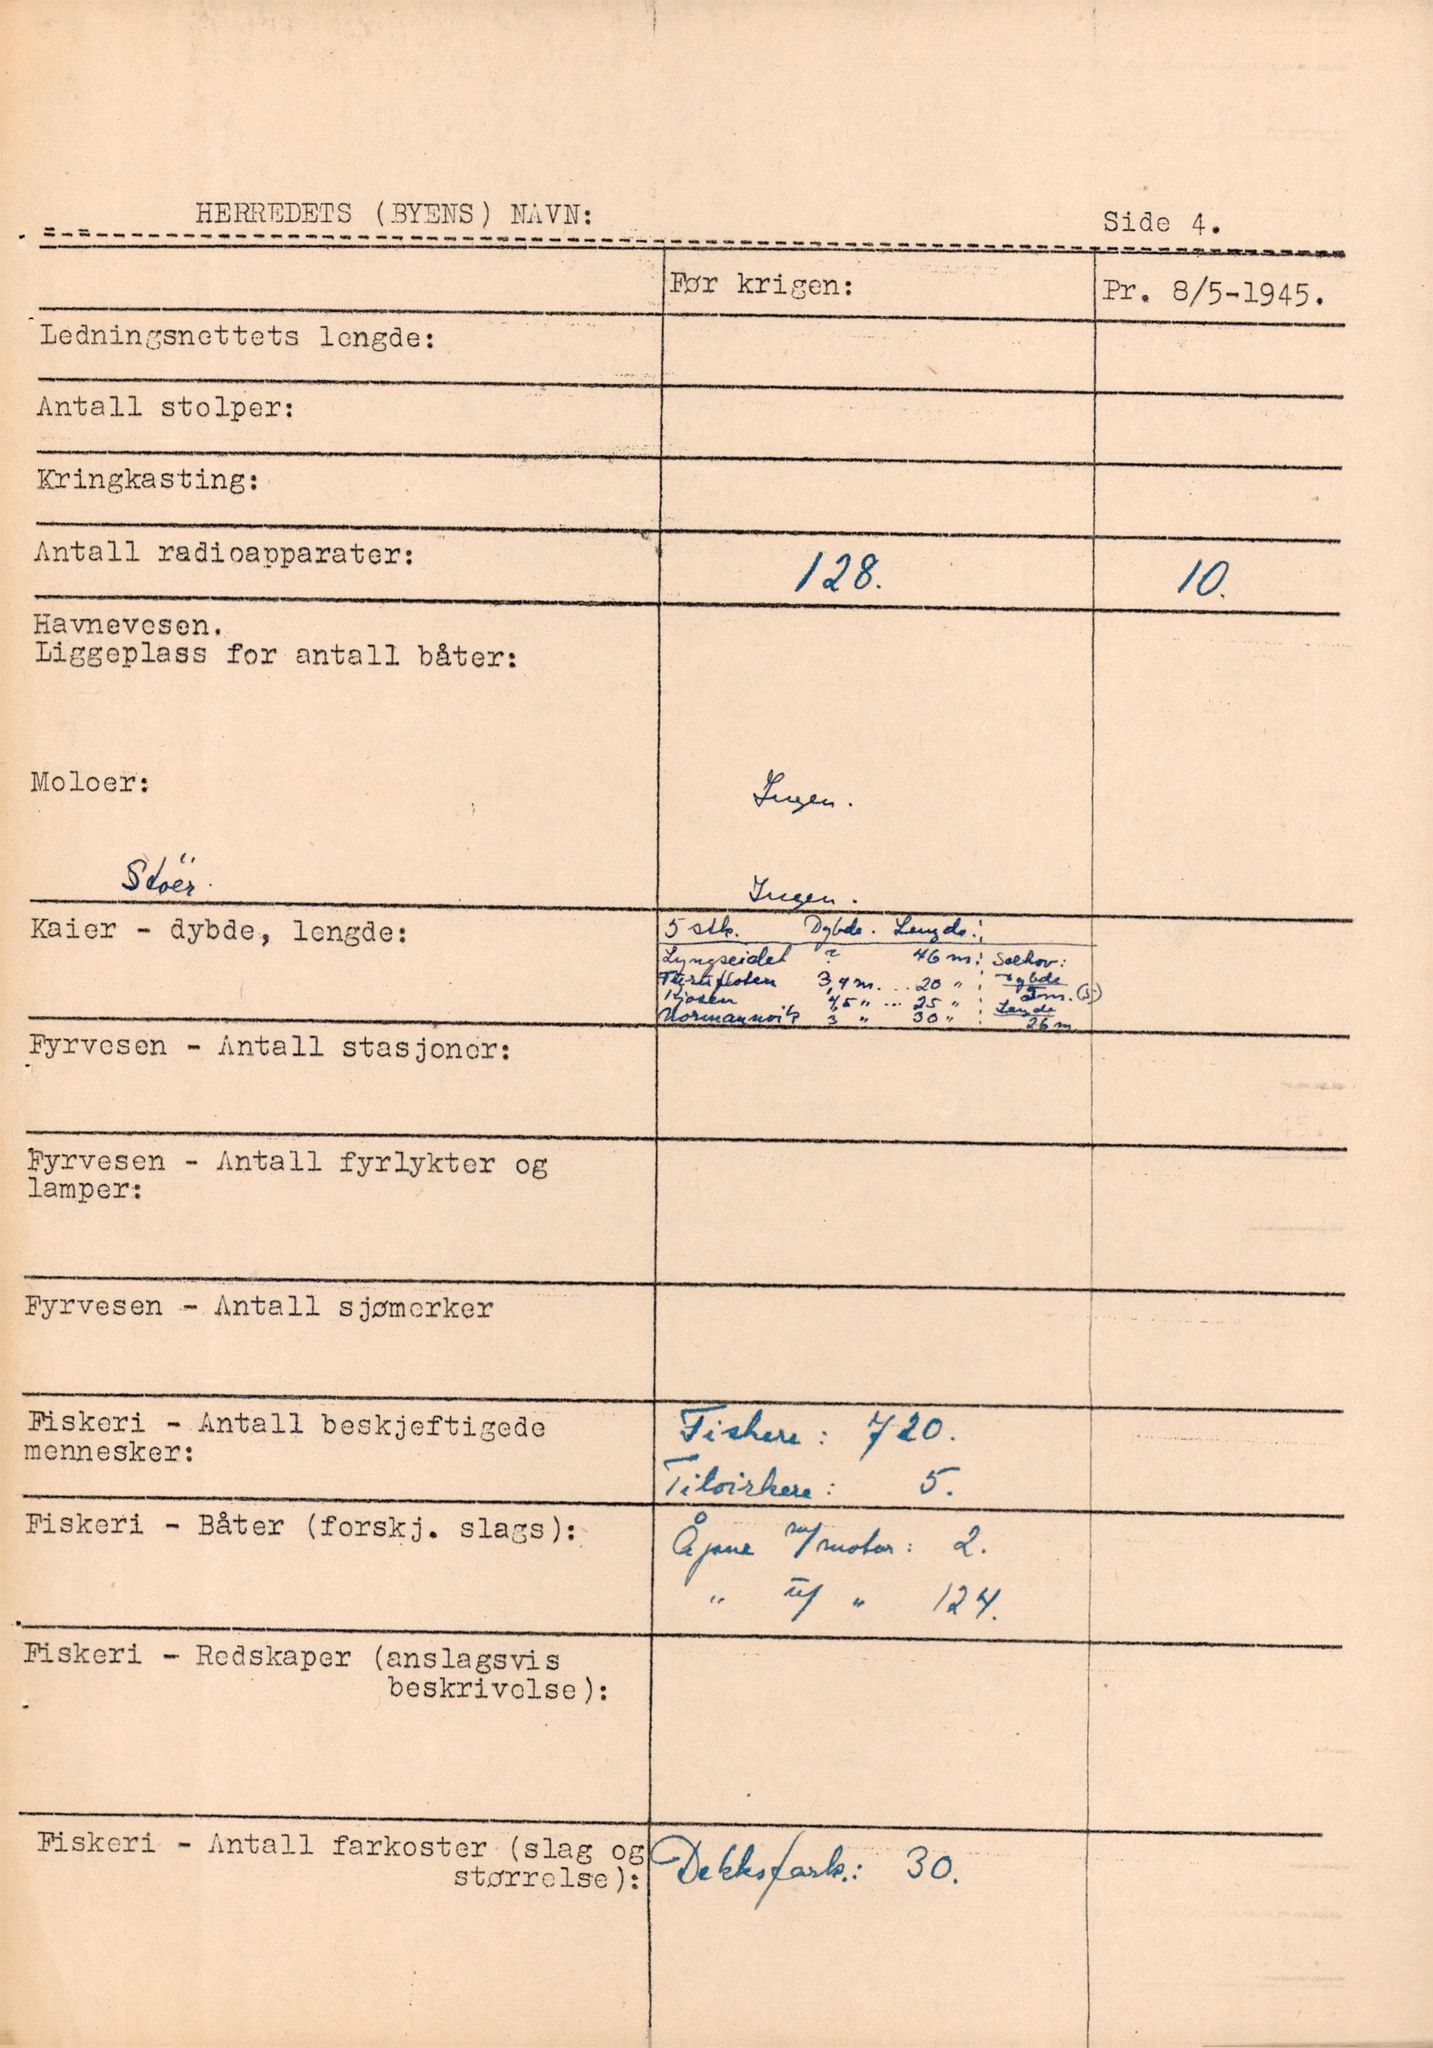 HERREDETS (BYENS) NAVN:
Side 4.
Før krigen:
Pr. 8/5-1945.
Ledningsnettets lengde:
Antall stolper:
Kringkasting:
Antall radioapparater:
128.
10.
Havnevesen.
Liggeplass for antall båter:
Moloer:
Ingen.
Støer.
Ingen.
Kaier - dybde, lengde:
5 stk. Dybde. Lengde:
Lyngseidet ? 46 m. Solhov:
3,4 m. ... 20 " Dybde
Kjosen 4,5 " ... 25 " 5 m. (5)
Normannvik 3 " 30 " Lengde
26 m
Fyrvesen - Antall stasjoner:
Fyrvesen - Antall fyrlykter og
lamper:
Fyrvesen - Antall sjømerker
Fiskeri - Antall beskjeftigede
mennesker:
Fiskere: 720.
Tilvirkere: 5.
Fiskeri - Båter (forskj. slags):
Åpne m/motor: 2.
" u/ " 124.
Fiskeri - Redskaper (anslagsvis
beskrivelse):
Fiskeri - Antall farkoster (slag og
størrelse):
Dekksfark.: 30.